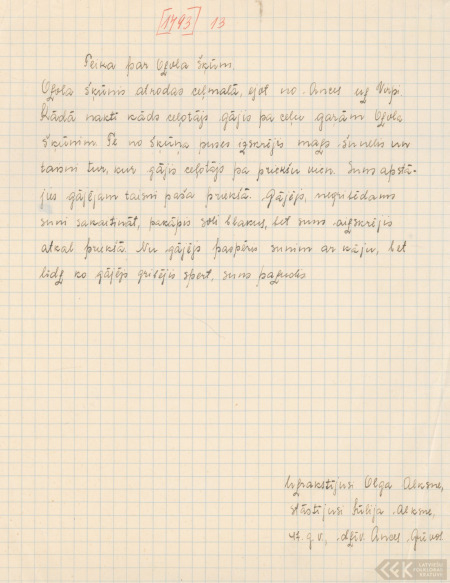 [1493] 13
Teika par Ozola šķūni.
Ozola šķūnis atrodas ceļmalā, ejot no Ances uz Virpi.
Kādā naktī kāds ceļotājs gājis pa ceļu garām Ozola
šķūnim. Te no šķūņa puses izskrējis mazs sunelis un
taisni tur, kur gājis ceļotājs pa priekšu vien. Suns apstā-
jies gājējam taisni paša priekšā. Gājējs, negribēdams
suni sakaitināt, pakāpis soli blakus, bet suns aizskrējis
atkal priekšā. Nu gājējs paspēris sunim ar kāju, bet
līdz ko gājējs gribējis spert, suns pazudis
Uzrakstījusi Olga Alksne,
stāstījusi Lībija Alksne,
47. g. v., dzīv. Ances
LATVIEŠU
FOLKLORAS
KRĀTUVE